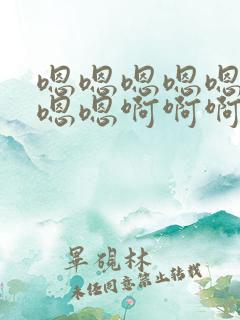 嗯嗯嗯嗯嗯
嗯嗯啊啊啊
罩硯林
未经同意禁止转载